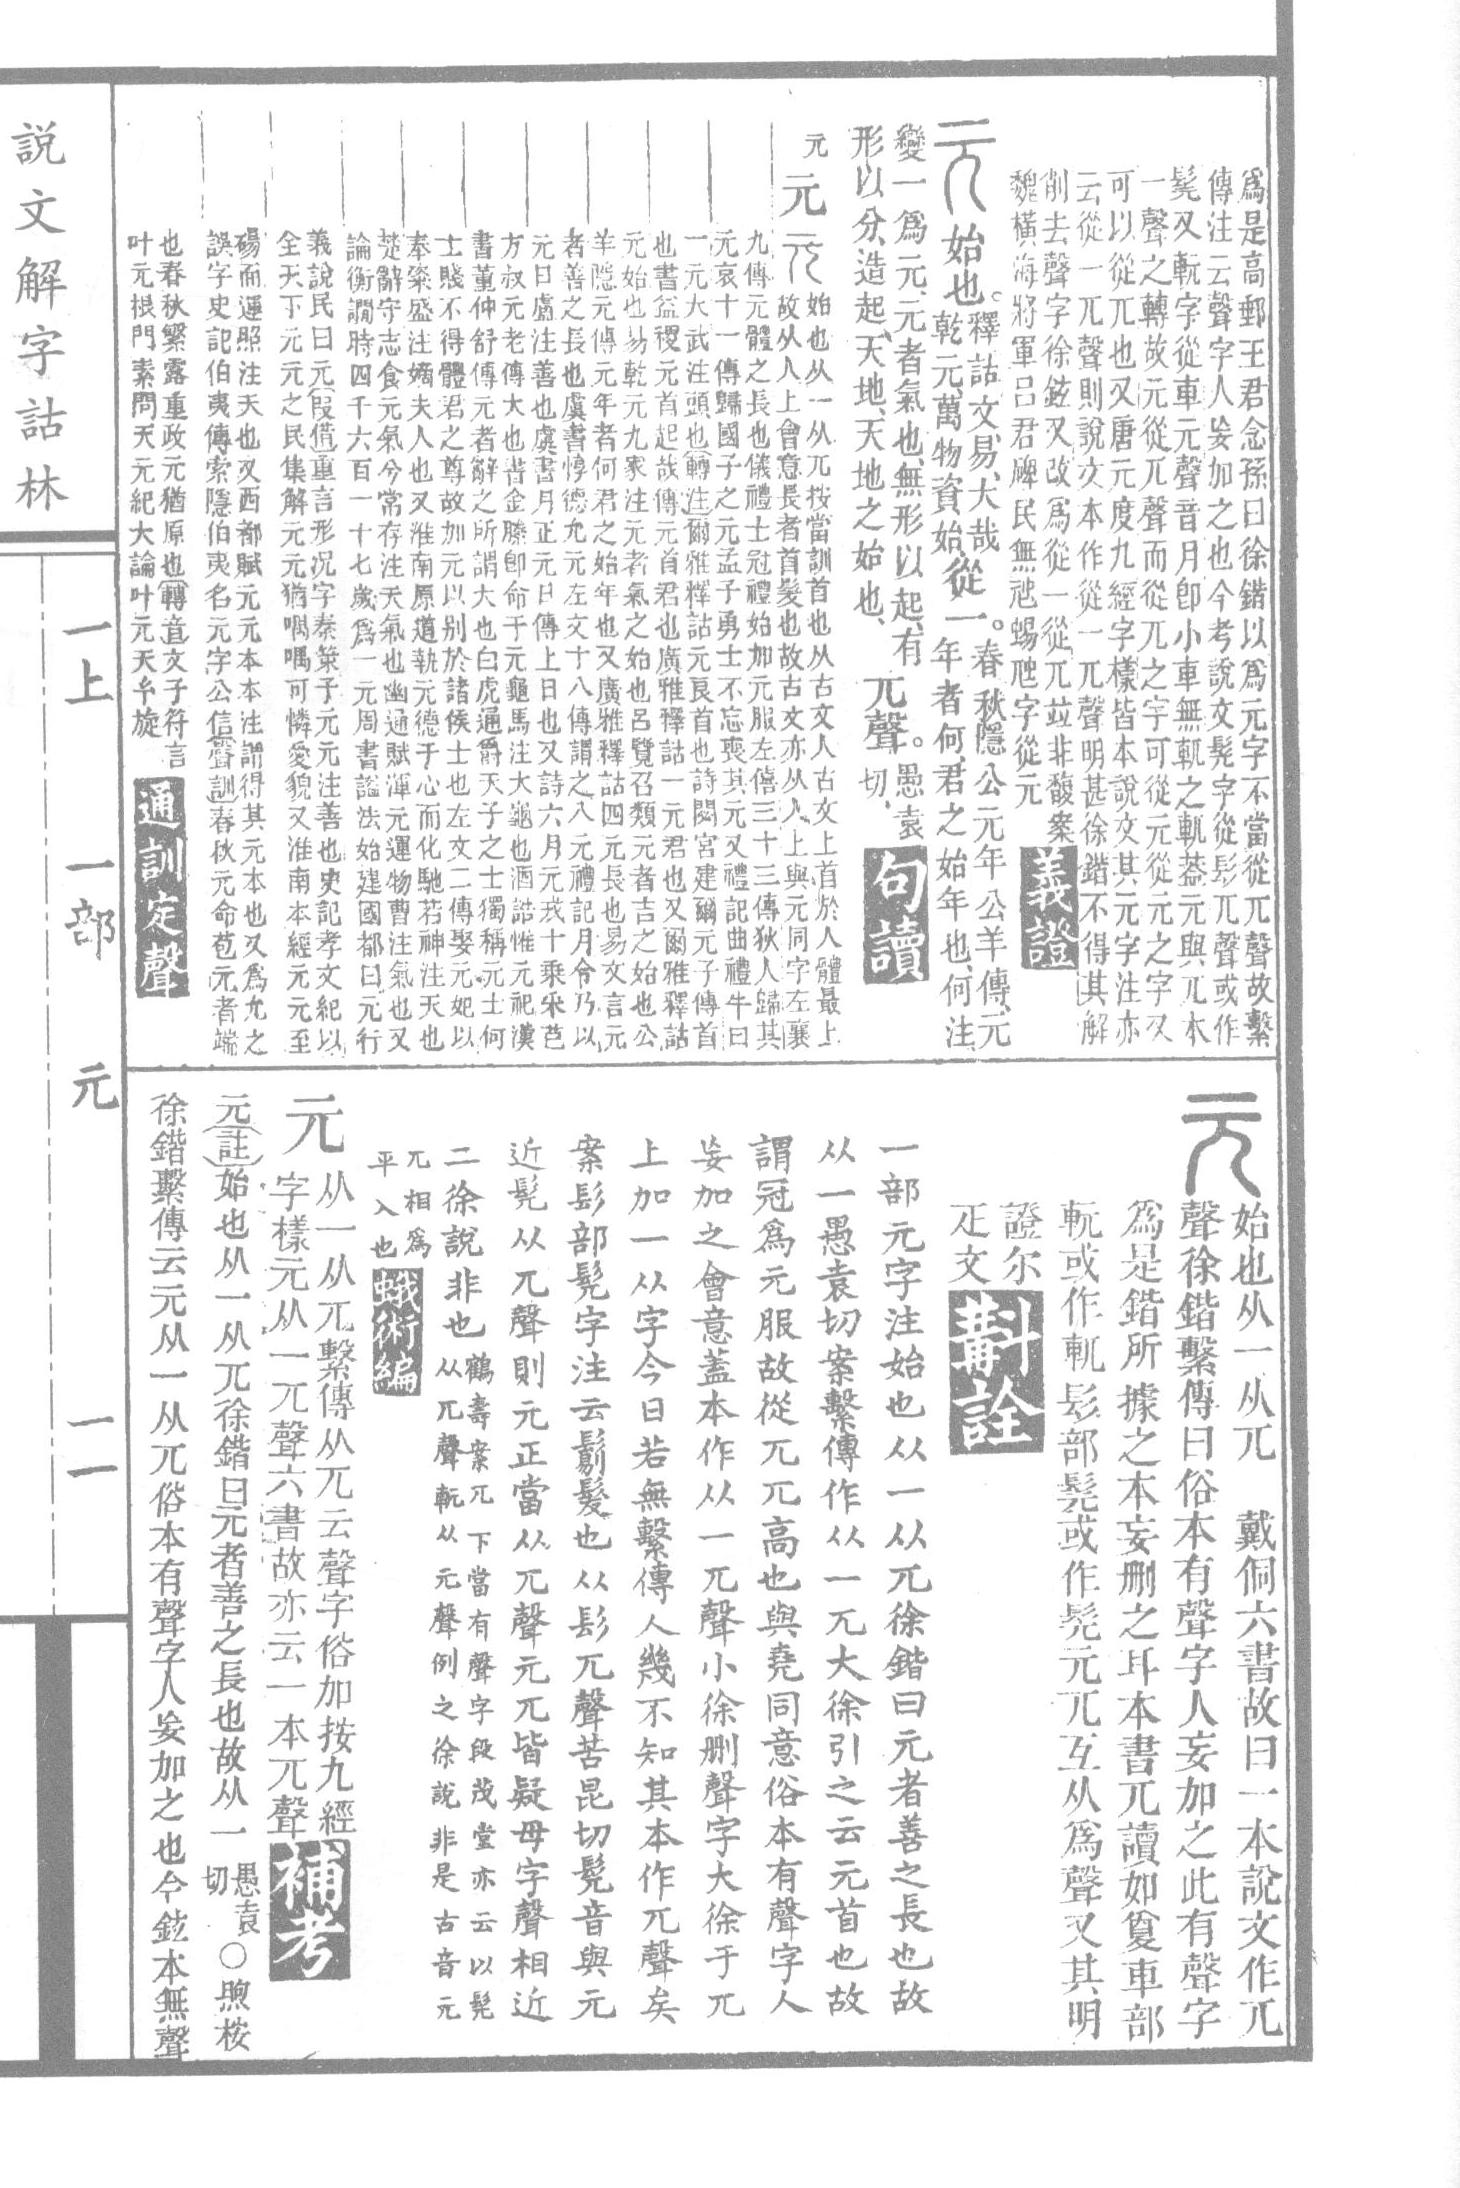 爲是高郵王君念孫曰徐鍇以爲元字不當從兀聲故繫
傳注云聲字人妄加之也今考說文髡字從髟兀聲或作
髨又軏字從車元聲音月卽小車無軏之軏葢元與兀本
一聲之轉故元從兀聲而從兀之字可從元從元之字又
可以從兀也又唐元度九經字樣皆本說文其元字注亦
云從一兀聲則說文本作從一兀聲明甚徐鍇不得其解
削去聲字徐鉉又改爲從一從兀竝非馥案
魏橫海將軍呂君碑民無虺蜴虺字從元
義證
元
始也。釋詁文易大哉乾元萬物資始從一。春秋隱公元年公羊傳元年者何君之始年也何注
變一爲元元者氣也無形以起有
形以分造起天地天地之始也
兀聲。愚袁切
句讀
元
元
始也从一从兀按當訓首也从古文人古文上首於人體最上
故从人上會意長者首髮也故古文亦从人上與元同字左襄
九傳元體之長也儀禮士冠禮始加元服左僖三十三傳狄人歸其
元哀十一傳歸國子之元孟子勇士不忘喪其元又禮記曲禮牛曰
一元大武注頭也轉注爾雅釋詁元良首也詩閟宮建爾元子傳首
也書益稷元首起哉傳元首君也廣雅釋詁一元君也又爾雅釋詁
元始也易乾元九家注元者氣之始也呂覽召類元者吉之始也公
羊隱元傳元年者何君之始年也又廣雅釋詁四元長也易文言元
者善之長也虞書惇德允元左文十八傳謂之八元禮記月令乃以
元日盧注善也虞書月正元日傳上日也又詩六月元戎十乘采芑
方叔元老傳大也書金縢卽命于元龜馬注大龜也酒誥惟元祀漢
書董仲舒傳元者辭之所謂大也白虎通爵天子之士獨稱元士何
士賤不得體君之尊故加元以別於諸侯士也左文二傳娶元妃以
奉粢盛注嫡夫人也又淮南原道執元德于心而化馳若神注天也
楚辭守志食元氣兮常存注天氣也幽通賦渾元運物曹注氣也又
論衡調時四千六百一十七歲爲一元周書諡法始建國都曰元行
義說民曰元叚借重言形況字秦策子元元注善也史記孝文紀以
全天下元元之民集解元元猶喁喁可憐愛貌又淮南本經元元至
碭而運照注天也又西都賦元元本本注謂得其元本也又爲允之
誤字史記伯夷傳索隱伯夷名元字公信聲訓春秋元命苞元者端
也春秋繁露重政元猶原也轉音文子符言
叶元根門素問天元紀大論叶元天幺旋
通訓定聲
元
始也从一从兀　戴侗六書故曰一本說文作兀
聲徐鍇繫傳曰俗本有聲字人妄加之此有聲字
爲是鍇所據之本妄刪之耳本書兀讀如夐車部
軏或作軏髟部髡或作髨元兀互从爲聲又其明
證尔
疋文
斠詮
一部元字注始也从一从兀徐鍇曰元者善之長也故
从一愚袁切案繫傳作从一兀大徐引之云元首也故
謂冠爲元服故從兀兀高也與堯同意俗本有聲字人
妄加之會意蓋本作从一兀聲小徐刪聲字大徐于兀
上加一从字今日若無繫傳人幾不知其本作兀聲矣
案髟部髡字注云鬀髮也从髟兀聲苦昆切髡音與元
近髡从兀聲則元正當从兀聲元兀皆疑母字聲相近
二徐說非也鶴壽案兀下當有聲字段茂堂亦云以髡从兀聲軏从元聲例之徐說非是古音元
兀相爲
平入也
蛾術編
元
从一从兀繫傳从兀云聲字俗加按九經
字樣元从一兀聲六書故亦云一本兀聲
補考
元註始也从一从兀徐鍇曰元者善之長也故从一愚袁切○煦桉
徐鍇繫傳云元从一从兀俗本有聲字人妄加之也今鉉本無聲
說文解字詁林
一上　一部　元
一一